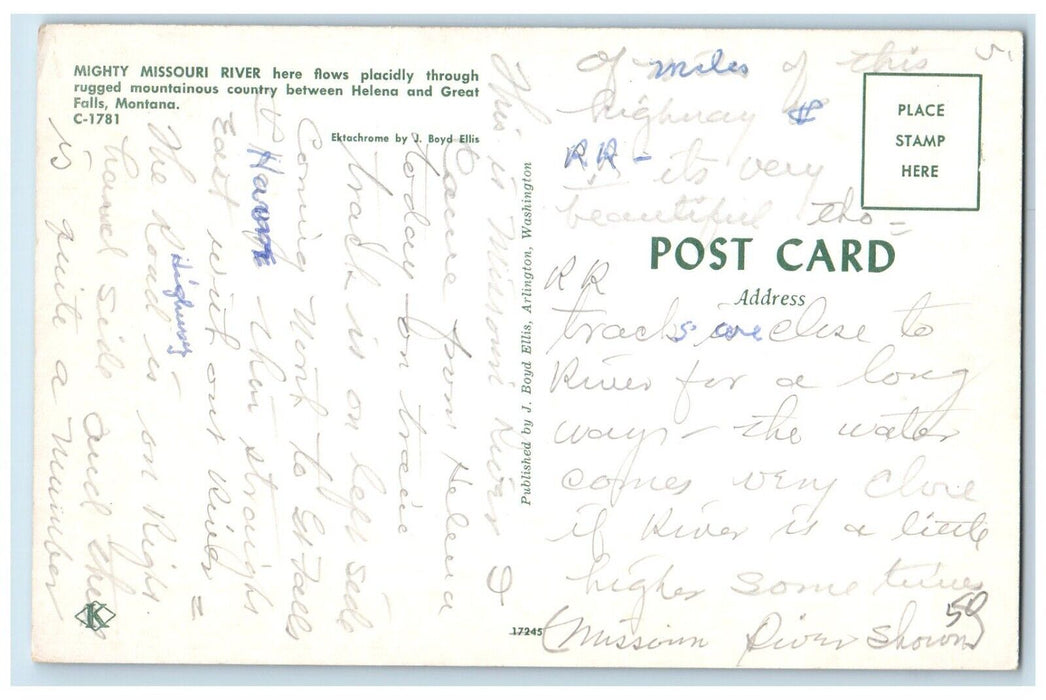 MIGHTY MISSOURI RIVER here flows placidly through
rugged mountainous country between Helena and Great
Falls, Montana.
C-1781
Ektachrome by J. Boyd Ellis
This is Missouri River
I came from Helena
today - on train
track is on left side
Coming North to Gt Falls
to Havre then straight
East with out River =
The Road is on Right
Highway
hand side and there
is quite a number
Published by J. Boyd Ellis, Arlington, Washington
17245
K
of miles of this
highway &
RR - its very
beautiful tho =
PLACE
STAMP
HERE
POST CARD
Address
RR
tracks are close to
River for a long
ways - the water
comes very close
if River is a little
higher some times
(Missouri River Shown)
50